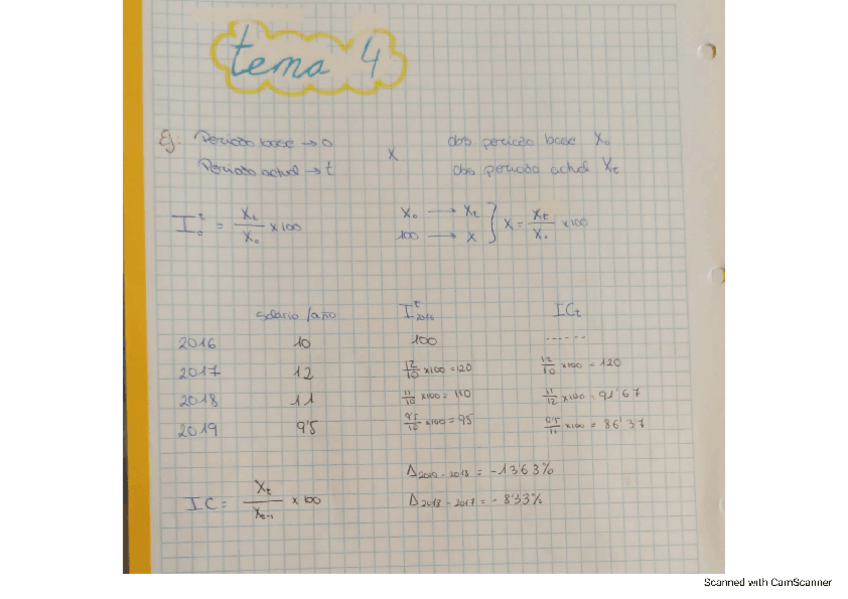 tema 4
Ej: Periodo base → 0
Periodo actual → t
X
obs periodo base X₀
obs periodo actual Xt
I₀ᵗ = Xt/X₀ x 100
X₀ → Xt
100 → X
} X = Xt/X₀ x100
salario/año I₂₀₁₆ᵗ ICt
2016 10 100 ------
2017 12 12/10 x100 = 120 12/10 x100 = 120
2018 11 11/10 x100 = 110 11/12 x100 = 91'67
2019 9'5 9'5/10 x100 = 95 9'5/11 x100 = 86'37
IC = Xt/Xt-1 x 100
Δ2019-2018 = -13'63%
Δ2018-2017 = -8'33%
Scanned with CamScanner